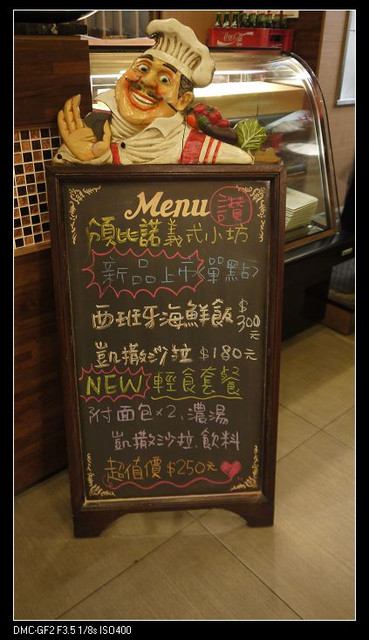 Coca-Cola
Menu 讚
頌比諾義式小坊
新品上市(單點)
西班牙海鮮飯 $300元
凱撒沙拉 $180元
NEW 輕食套餐
附面包×2、濃湯
凱撒沙拉、飲料
超值價 $250元
DMC-GF2 F3.5 1/8s ISO400